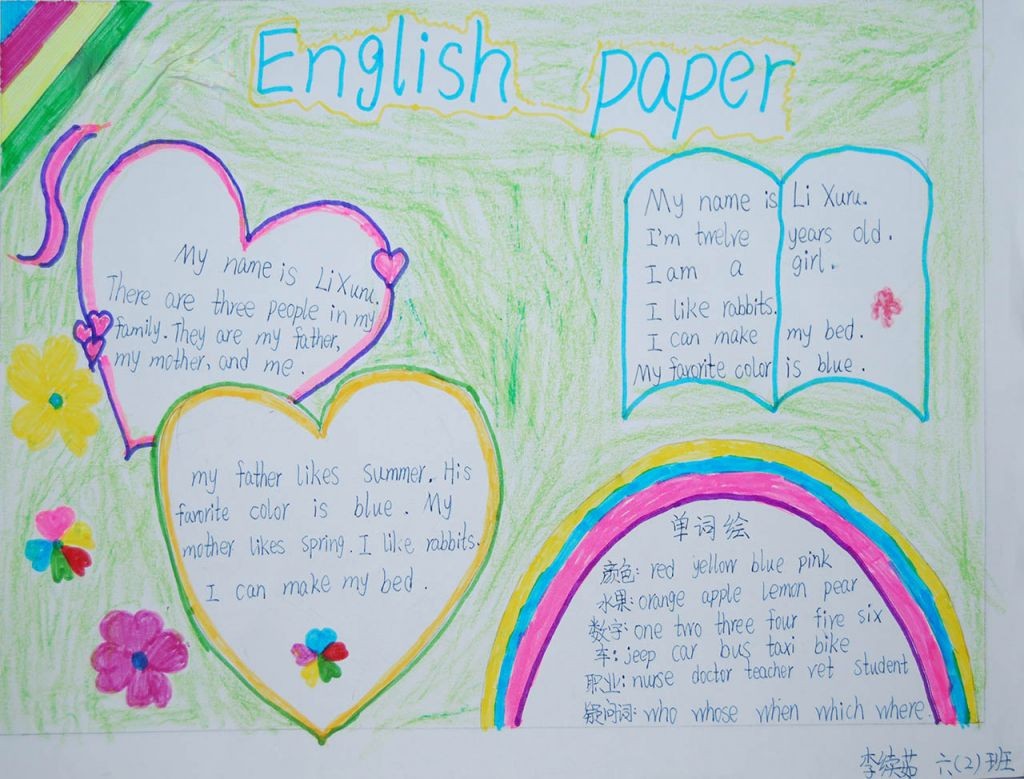 English paper
My name is Li Xuru.
There are three people in my
family. They are my father,
my mother, and me.
my father likes summer. His
favorite color is blue. My
mother likes spring. I like rabbits.
I can make my bed.
My name is Li Xuru.
I'm twelve years old.
I am a girl.
I like rabbits.
I can make my bed.
My favorite color is blue.
单词绘
颜色: red yellow blue pink
水果: orange apple lemon pear
数字: one two three four five six
车: jeep car bus taxi bike
职业: nurse doctor teacher vet student
疑问词: who whose when which where
李续茹 六(2)班